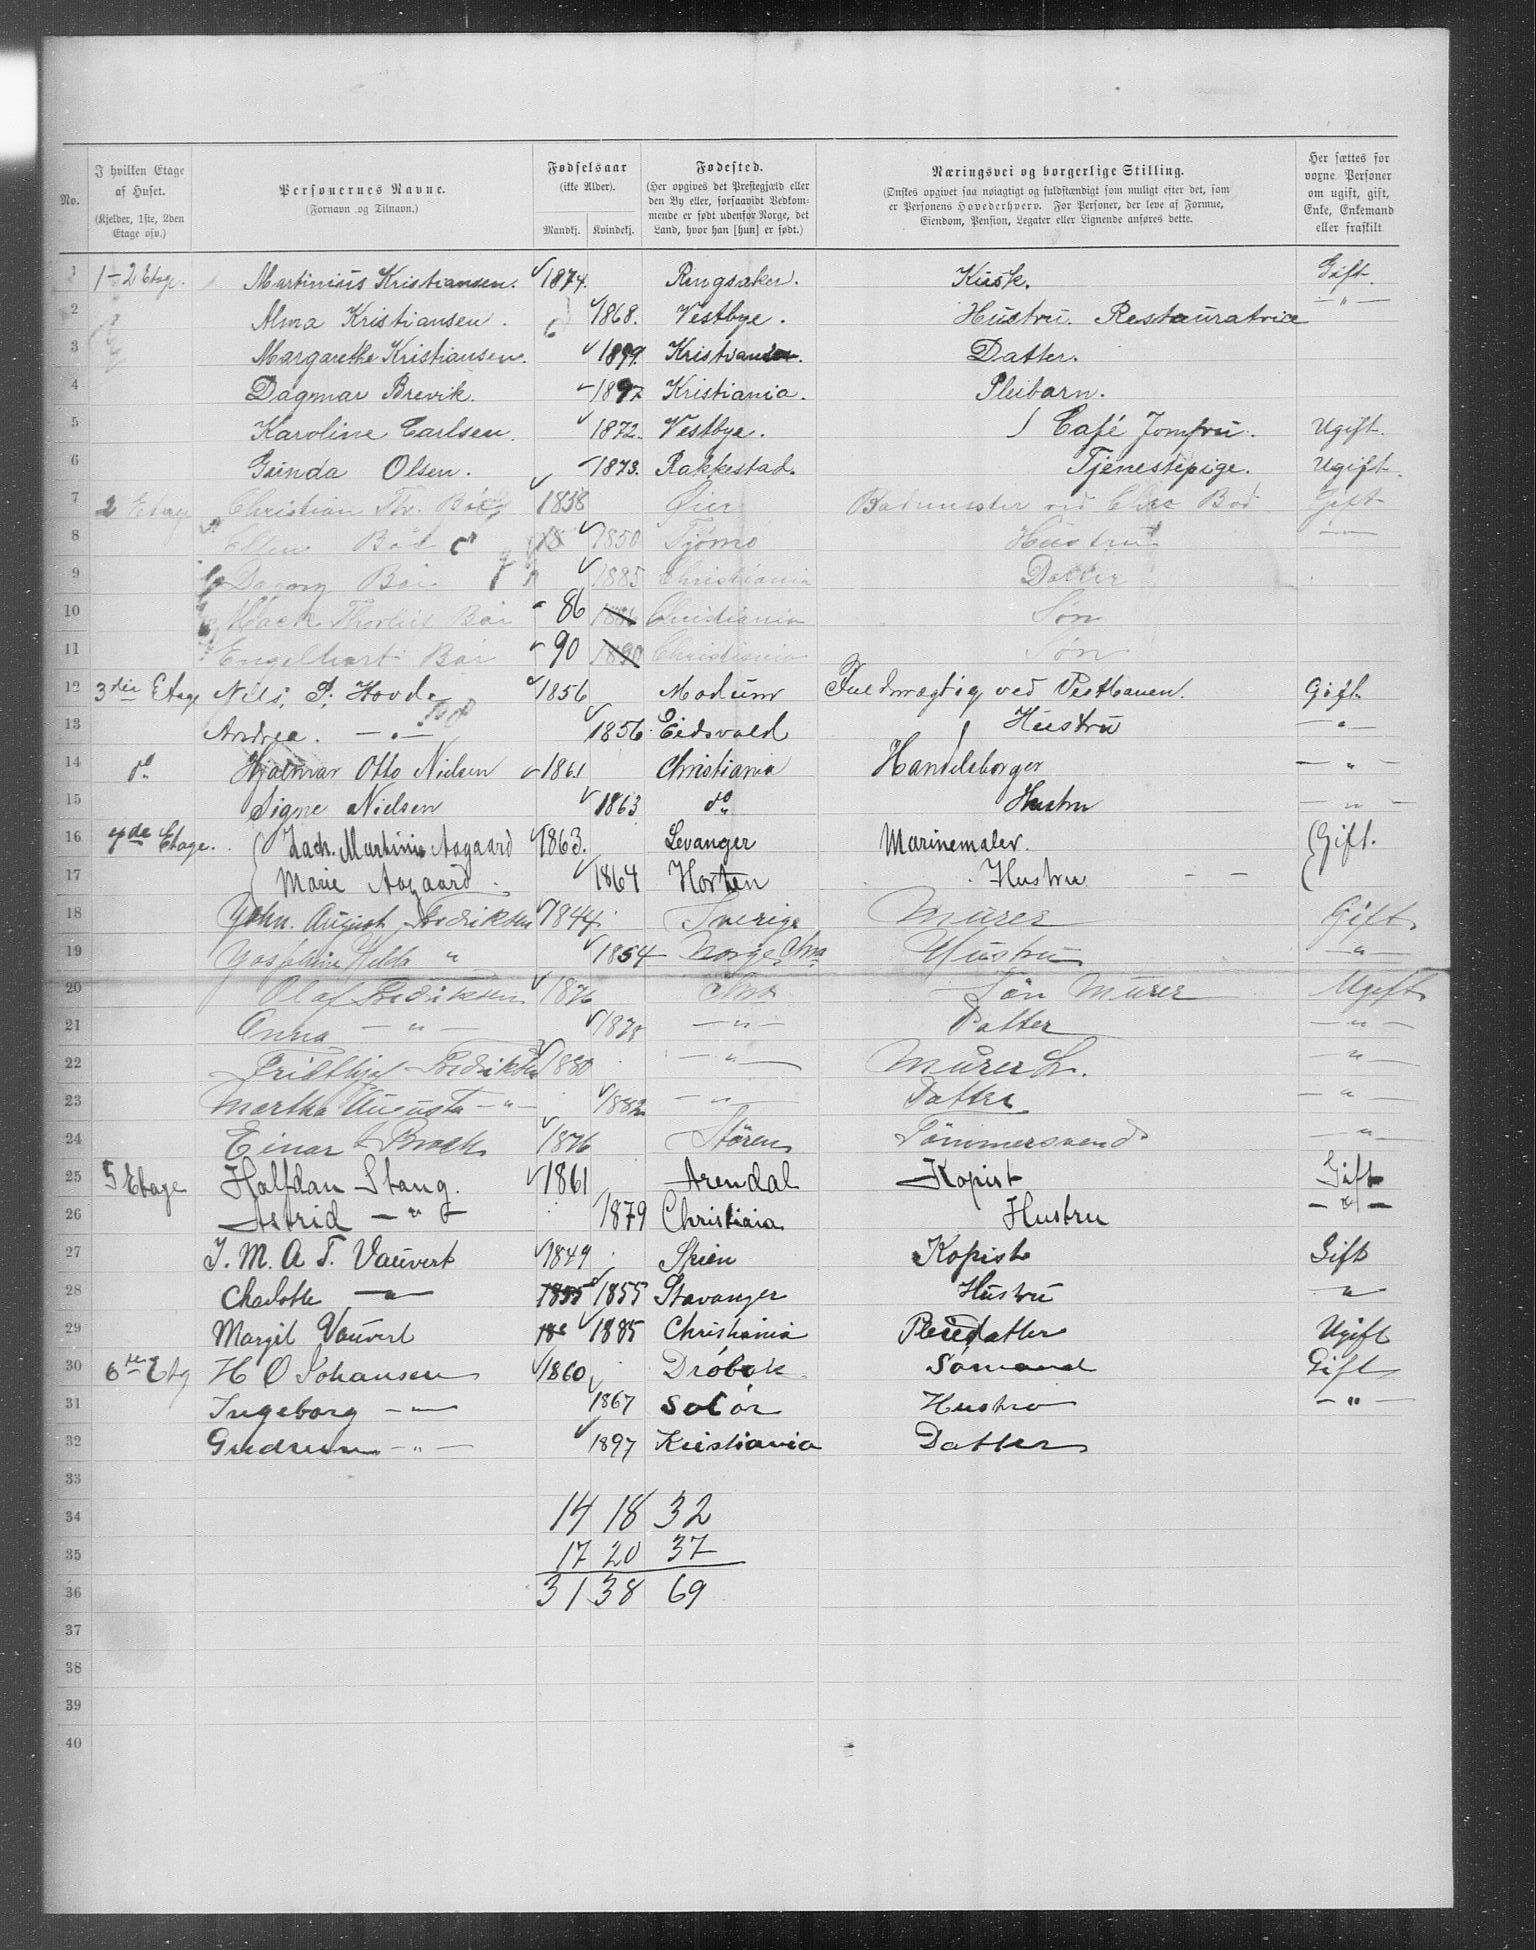 No. | I hvilken Etage af Huset. (Kjelder, 1ste, 2den Etage osv.) | Personernes Navne. (Fornavn og Tilnavn.) | Fødselsaar (ikke Alder). Mandkj. Kvindekj. | Fødested. (Her opgives det Prestegjæld eller den By eller, forsaavidt Vedkommende er født udenfor Norge, det Land, hvor han [hun] er født.) | Næringsvei og borgerlige Stilling. (Ønskes opgivet saa nøiagtigt og fuldstændigt som muligt efter det, som er Personens Hovederhverv. For Personer, der leve af Formue, Eiendom, Pension, Legater eller Lignende anføres dette.) | Her sættes for vorne Personer om ugift, gift, Enke, Enkemand eller fraskilt
1 1-2 Etage. Martinius Kristiansen. 1874. Ringsaker. Kusk. Gift
2 Alma Kristiansen. 1868. Vestbye. Hustru. Restauratrice — " —
3 Margarethe Kristiansen. 1899. Datter.
4 Dagmar Brevik. 1897 Kristiania. Pleibarn.
5 Karoline Carlsen. 1872. Vestbye. Café Jomfru. Ugift.
6 Olsen. 1873. Rakkestad. Tjenestepige. Ugift.
7 2 Etag Christian Th. 1838 Øier Bademester ved Bad Gift
8 Ellen 18 1850 Tjømø Hustru
9 Dagny 1885 Christiania Datter
10 86 1886 Christiania Søn
11 Engelhart 90 1890 Christiania Søn
12 3die Etage Nils. P. Hovde 1856 Modum Fuldmægtig ved Vestbanen. Gift
13 Andrea. — " — 1856 Eidsvold Hustru — " —
14 do Hjalmar Otto Nielsen 1861 Christiania Handelsborger — " —
15 Signe Nielsen 1863 do Hustru — " —
16 4de Etage. Zach. Martinius Aagaard 1863. Levanger Marinemaler. Gift.
17 Marie Aagaard 1864 Horten Hustru
18 John. August Fredriksen 1844 Sverige Murer Gift
19 Josphine Hilda " 1854 Norge Chra Hustru — " —
20 Olaf Fredriksen 1876 Chra Søn Murer Ugift
21 Anna — " — 1878 — " — Datter — " —
22 Fridthjof Fredriksen 1880 — " — Murer L. — " —
23 Martha Augusta — " — 1882 — " — Datter — " —
24 Einar Brock 1876 Støren Tømmersvend — " —
25 5 Etage Halfdan Stang. 1861 Arendal Kopist Gift
26 Astrid — " — 1879 Christiania Hustru — " —
27 J. M. A. T. Vauvert 1849 Skien Kopist Gift
28 Charlotte — " — 1855 1855 Stavanger Hustru "
29 Margit Vauvert 188 1885 Christiania Pleiedatter Ugift
30 6te Etg H O Johansen 1860 Drøbak Sømand Gift
31 Ingeborg — " — 1867 Solør Hustru — " —
32 Gudrun — " — 1897 Kristiania Datter
33
34 14 18 32
35 17 20 37
36 31 38 69
37
38
39
40